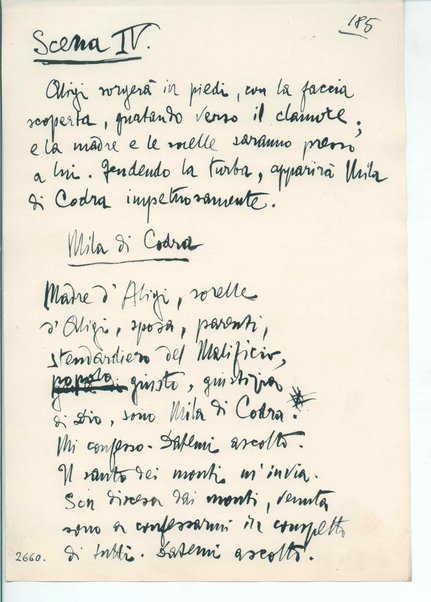 185
Scena IV.
Aligi sorgerà in piedi, con la faccia
scoperta, guatando verso il clamore;
e la madre e le sorelle saranno presso
a lui. Fendendo la turba, apparirà Mila
di Codra impetuosamente.
Mila di Codra
Madre d'Aligi, sorelle
d'Aligi, sposa, parenti,
stendardiero del Malificio,
popolo giusto, giustizia
di Dio, sono Mila di Codra.
Mi confesso. Datemi ascolto.
Il santo dei monti m'invia.
Son discesa dai monti, venuta
sono a confessarmi in cospetto
di tutti. Datemi ascolto.
2660.